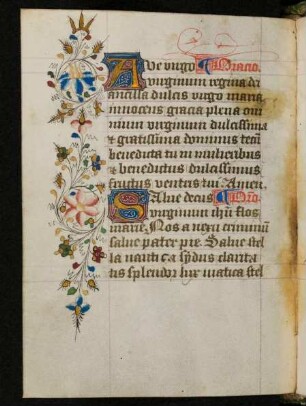 Ave virgo Oracio.
virginum regina dei
ancilla dulcis virgo maria
innocens gracia plena om
nium virginum dulcissima
& gratissima dominus tecū
benedicta tu in mulieribus
& benedictus dulcissimus
fructus ventris tui Amen.
Salue decus Orō.
virginum ihū flos
marie. Nos a nexu criminū
salue pater pie Salue stel
la nauti ca sydus clarita
tis splendor hic matica stel